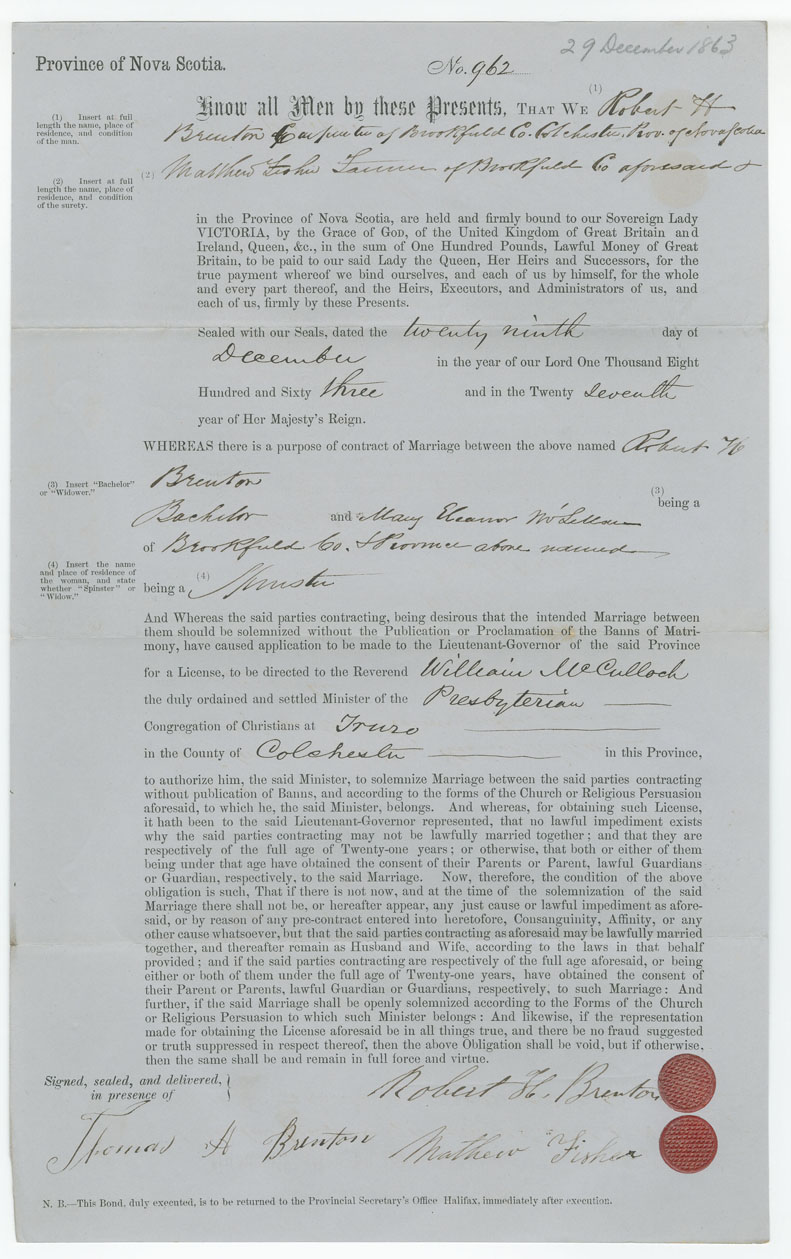 29 December 1863
Province of Nova Scotia.
No. 962
Know all Men by these Presents, THAT WE (1) Robert H
(1) Insert at full length the name, place of residence, and condition of the man.
Brenton Carpenter of Brookfield Co. Colchester, Prov. of Nova Scotia
(2) Matthew Fisher Farmer of Brookfield Co aforesaid &
(2) Insert at full length the name, place of residence, and condition of the surety.
in the Province of Nova Scotia, are held and firmly bound to our Sovereign Lady
VICTORIA, by the Grace of GOD, of the United Kingdom of Great Britain and
Ireland, Queen, &c., in the sum of One Hundred Pounds, Lawful Money of Great
Britain, to be paid to our said Lady the Queen, Her Heirs and Successors, for the
true payment whereof we bind ourselves, and each of us by himself, for the whole
and every part thereof, and the Heirs, Executors, and Administrators of us, and
each of us, firmly by these Presents.
Sealed with our Seals, dated the twenty ninth day of
December in the year of our Lord One Thousand Eight
Hundred and Sixty three and in the Twenty seventh
year of Her Majesty's Reign.
WHEREAS there is a purpose of contract of Marriage between the above named Robert H
(3) Insert "Bachelor" or "Widower."
Brenton (3) being a
Bachelor and Mary Eleanor McLellan
of Brookfield Co. & Province above named
(4) Insert the name and place of residence of the woman, and state whether "Spinster" or "Widow."
being a (4) Spinster
And Whereas the said parties contracting, being desirous that the intended Marriage between
them should be solemnized without the Publication or Proclamation of the Banns of Matri-
mony, have caused application to be made to the Lieutenant-Governor of the said Province
for a License, to be directed to the Reverend William McCulloch
the duly ordained and settled Minister of the Presbyterian
Congregation of Christians at Truro
in the County of Colchester in this Province,
to authorize him, the said Minister, to solemnize Marriage between the said parties contracting
without publication of Banns, and according to the forms of the Church or Religious Persuasion
aforesaid, to which he, the said Minister, belongs. And whereas, for obtaining such License,
it hath been to the said Lieutenant-Governor represented, that no lawful impediment exists
why the said parties contracting may not be lawfully married together; and that they are
respectively of the full age of Twenty-one years; or otherwise, that both or either of them
being under that age have obtained the consent of their Parents or Parent, lawful Guardians
or Guardian, respectively, to the said Marriage. Now, therefore, the condition of the above
obligation is such, That if there is not now, and at the time of the solemnization of the said
Marriage there shall not be, or hereafter appear, any just cause or lawful impediment as afore-
said, or by reason of any pre-contract entered into heretofore, Consanguinity, Affinity, or any
other cause whatsoever, but that the said parties contracting as aforesaid may be lawfully married
together, and thereafter remain as Husband and Wife, according to the laws in that behalf
provided; and if the said parties contracting are respectively of the full age aforesaid, or being
either or both of them under the full age of Twenty-one years, have obtained the consent of
their Parent or Parents, lawful Guardian or Guardians, respectively, to such Marriage: And
further, if the said Marriage shall be openly solemnized according to the Forms of the Church
or Religious Persuasion to which such Minister belongs: And likewise, if the representation
made for obtaining the License aforesaid be in all things true, and there be no fraud suggested
or truth suppressed in respect thereof, then the above Obligation shall be void, but if otherwise,
then the same shall be and remain in full force and virtue.
Signed, sealed, and delivered,
in presence of
Robert H. Brenton
Thomas H Brenton
Mathew Fisher
N. B.—This Bond, duly executed, is to be returned to the Provincial Secretary's Office Halifax, immediately after execution.